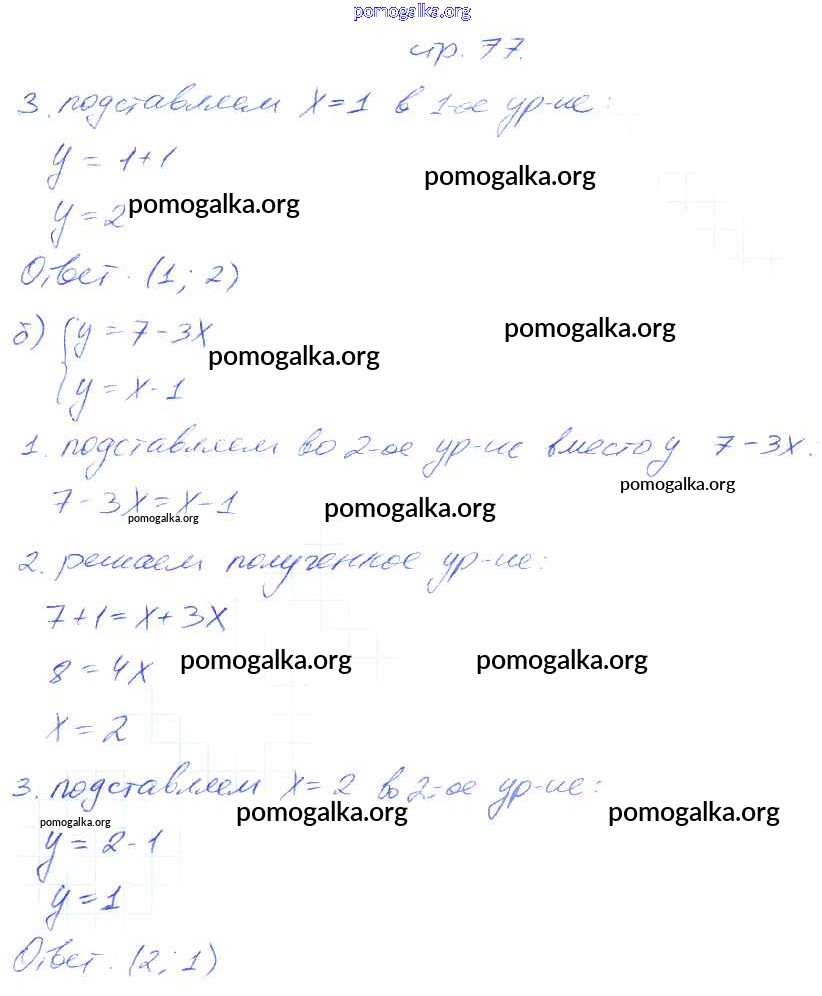 pomogalka.org
стр. 77.
3. подставляем x = 1 в 1-ое ур-ие:
y = 1+1
pomogalka.org
y = 2 pomogalka.org
Ответ. (1; 2)
б) { y = 7 - 3x pomogalka.org
pomogalka.org
y = x - 1
1. подставляем во 2-ое ур-ие вместо y 7 - 3x:
pomogalka.org
7 - 3x = x - 1 pomogalka.org
pomogalka.org
2. решаем полученное ур-ие:
7 + 1 = x + 3x
8 = 4x pomogalka.org pomogalka.org
x = 2
3. подставляем x = 2 во 2-ое ур-ие:
pomogalka.org pomogalka.org pomogalka.org
y = 2 - 1
y = 1
Ответ. (2; 1)